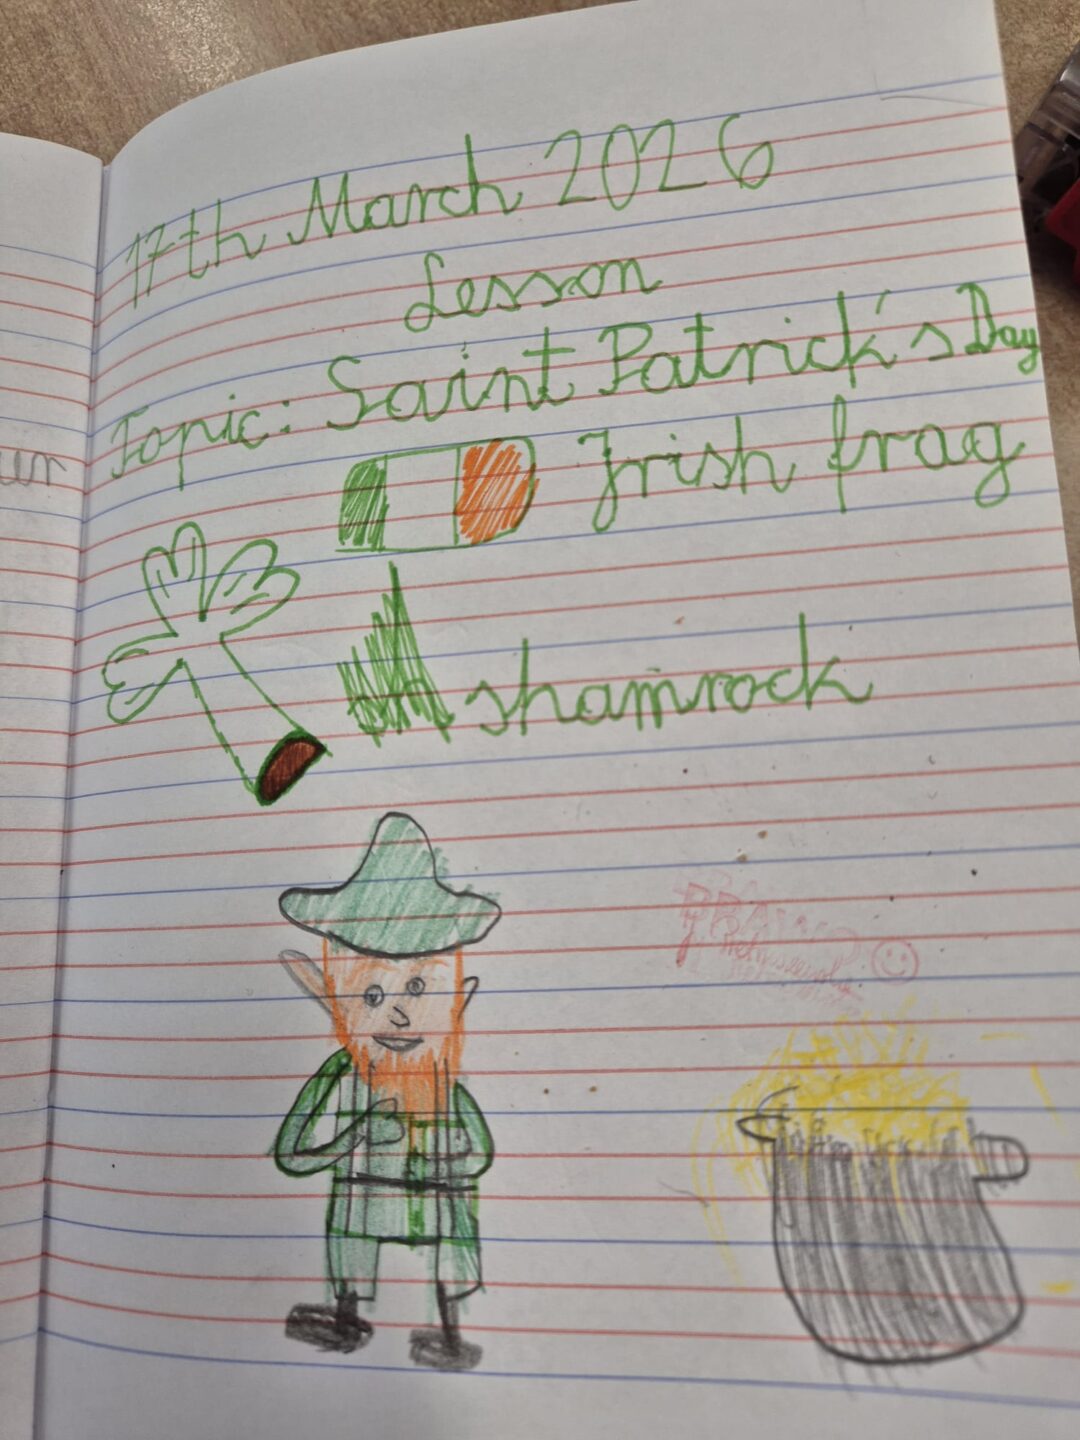 17th March 2026
Lesson
Topic: Saint Patrick's Day
Irish frag
shamrock
BRAWO